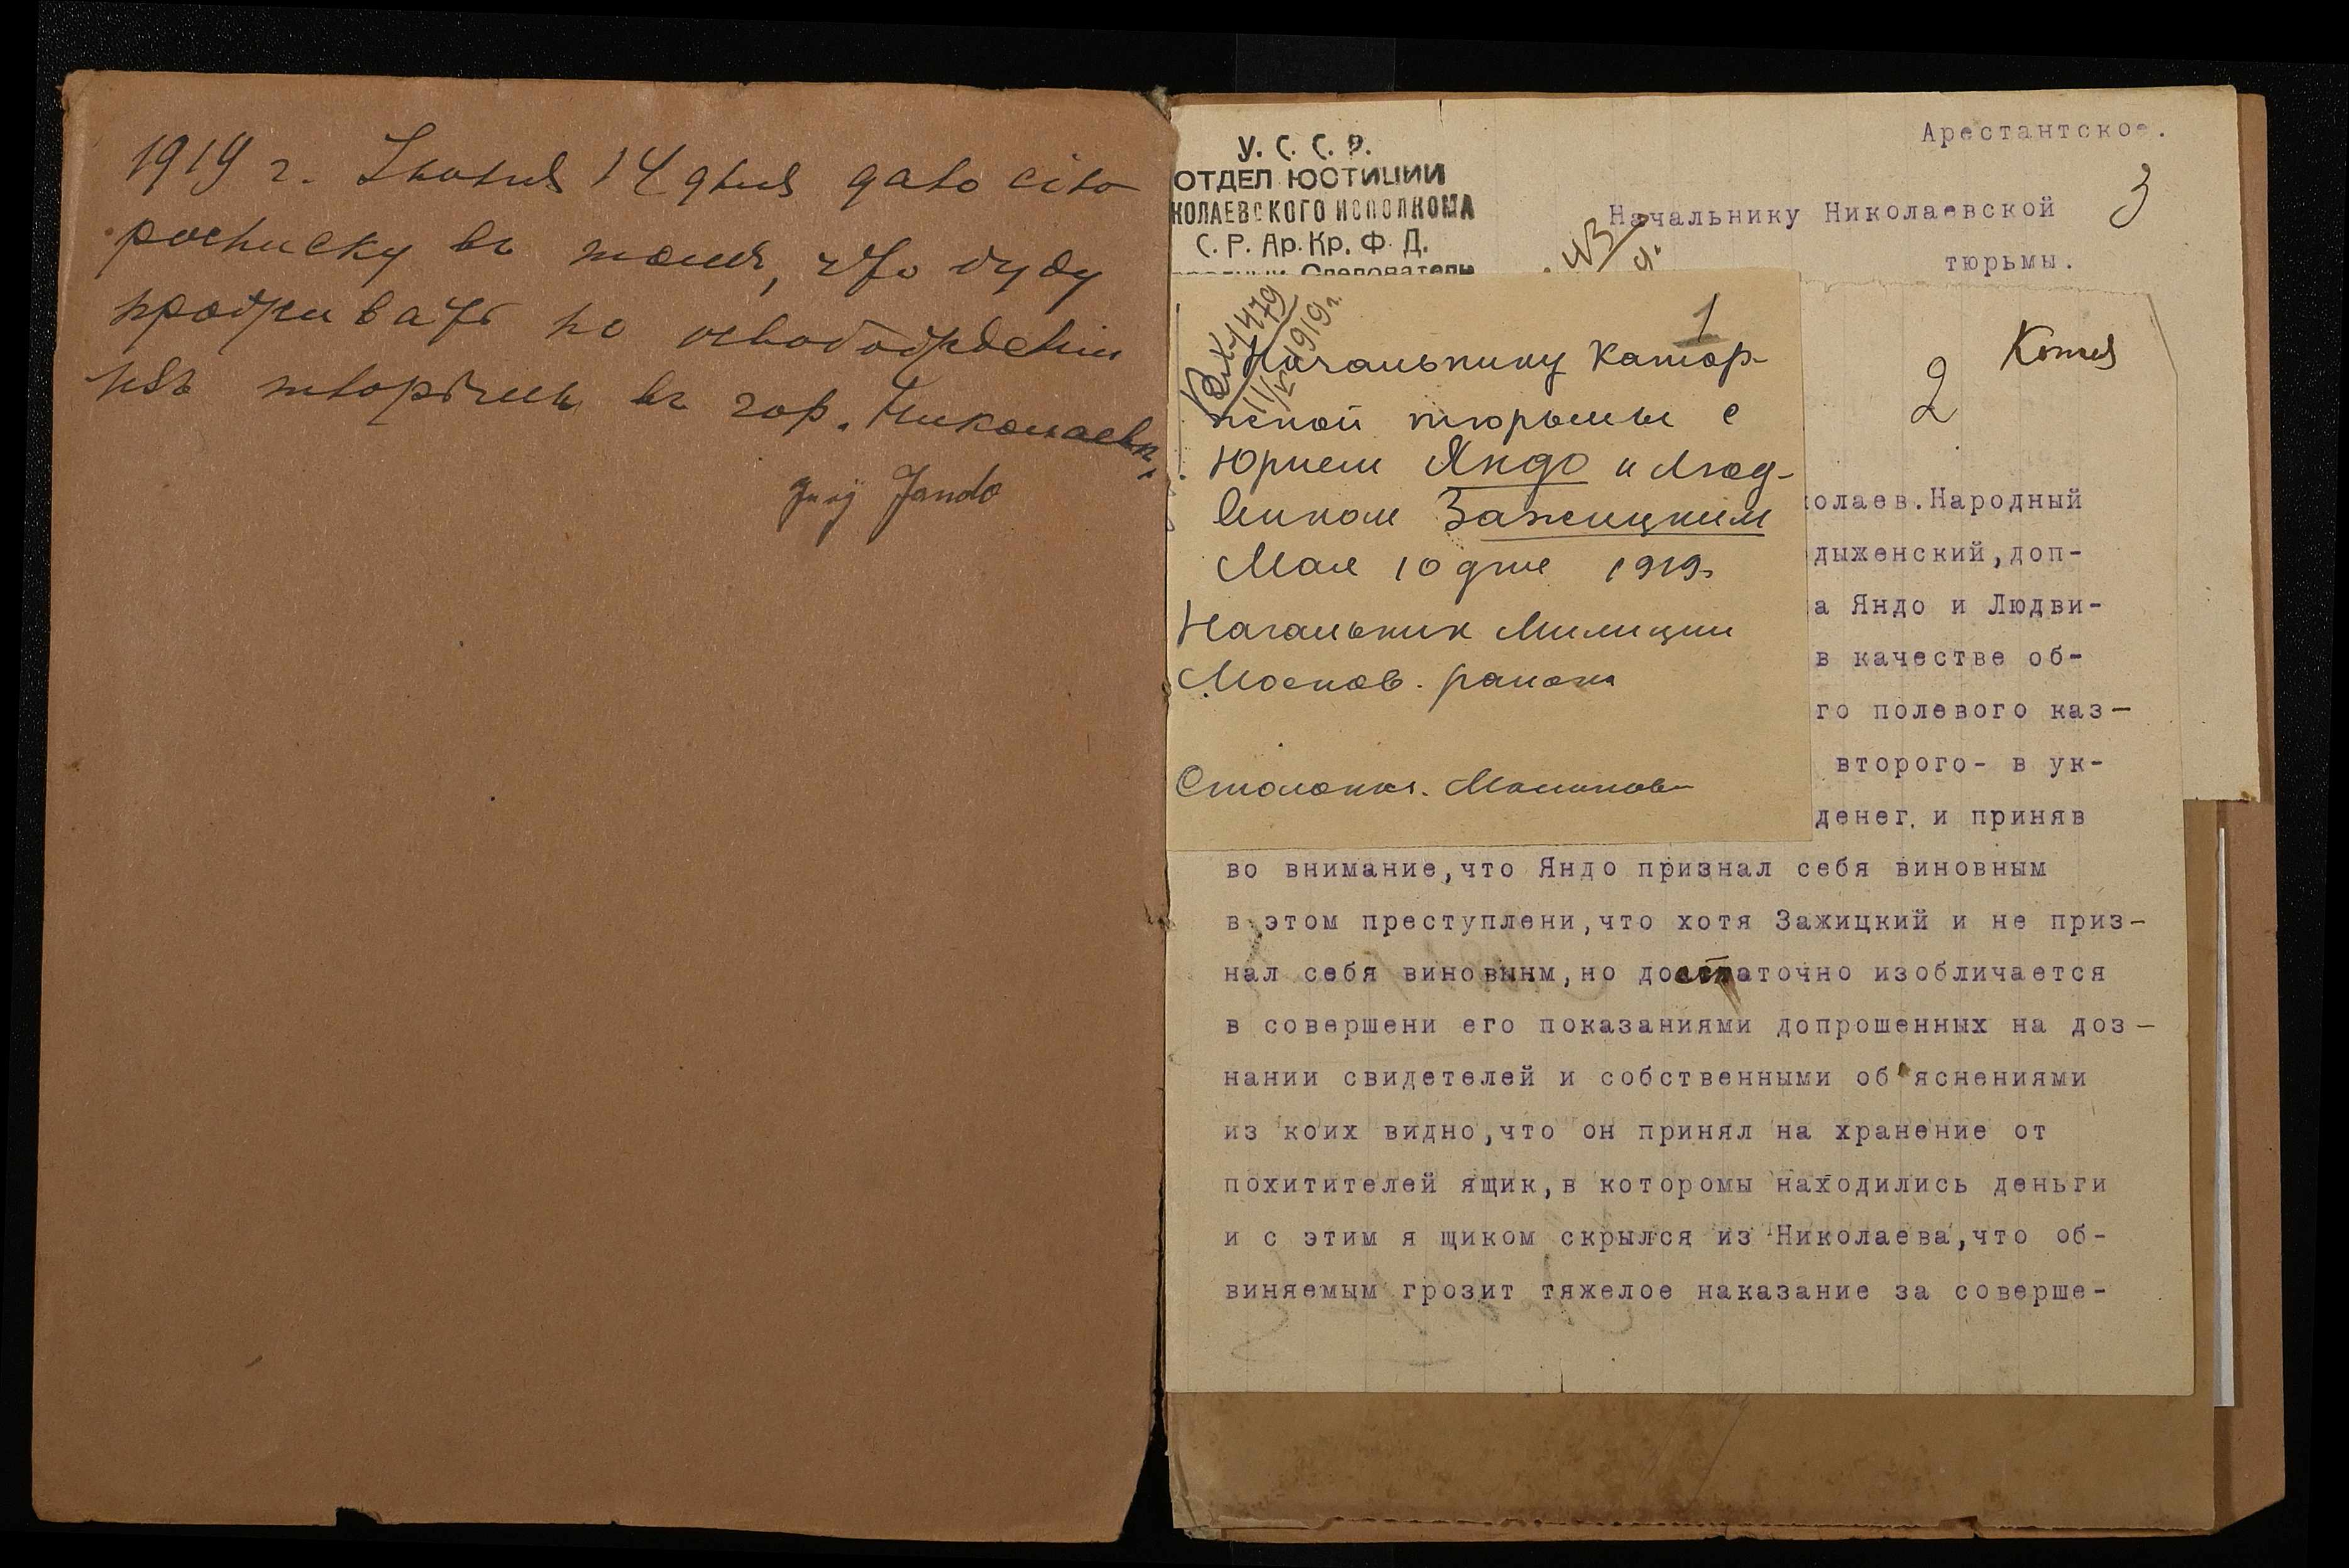 1919 г. Іюня 14 дня даю сію
росписку въ томъ, что буду
проживать по освобожденіи
изъ тюрьмы въ гор. Николаевѣ.
Jurij Jando
У. С. С. Р.
ОТДЕЛ ЮСТИЦИИ
КОЛАЕВСКОГО ИСПОЛКОМА
С. Р. Ар. Кр. Ф. Д.
Следователь
Арестантское.
3
Начальнику Николаевской
тюрьмы.
1
Вх 1479
1919 г.
Начальнику Катор-
жной тюрьмы с
Юрием Яндо и Люд-
виком Зажицким
Мая 10 дня 1919 г.
Начальник Милиции
Москов. района
Копия
2
колаев.Народный
дыженский,доп-
а Яндо и Людви-
в качестве об-
го полевого каз-
второго- в ук-
денег. и приняв
во внимание,что Яндо признал себя виновным
в этом преступлени,что хотя Зажицкий и не приз-
нал себя виновынм,но достаточно изобличается
в совершени его показаниями допрошенных на доз-
нании свидетелей и собственными об'яснениями
из коих видно,что он принял на хранение от
похитителей ящик,в которомы находились деньги
и с этим я щиком скрылся из Николаева,что об-
виняемым грозит тяжелое наказание за соверше-